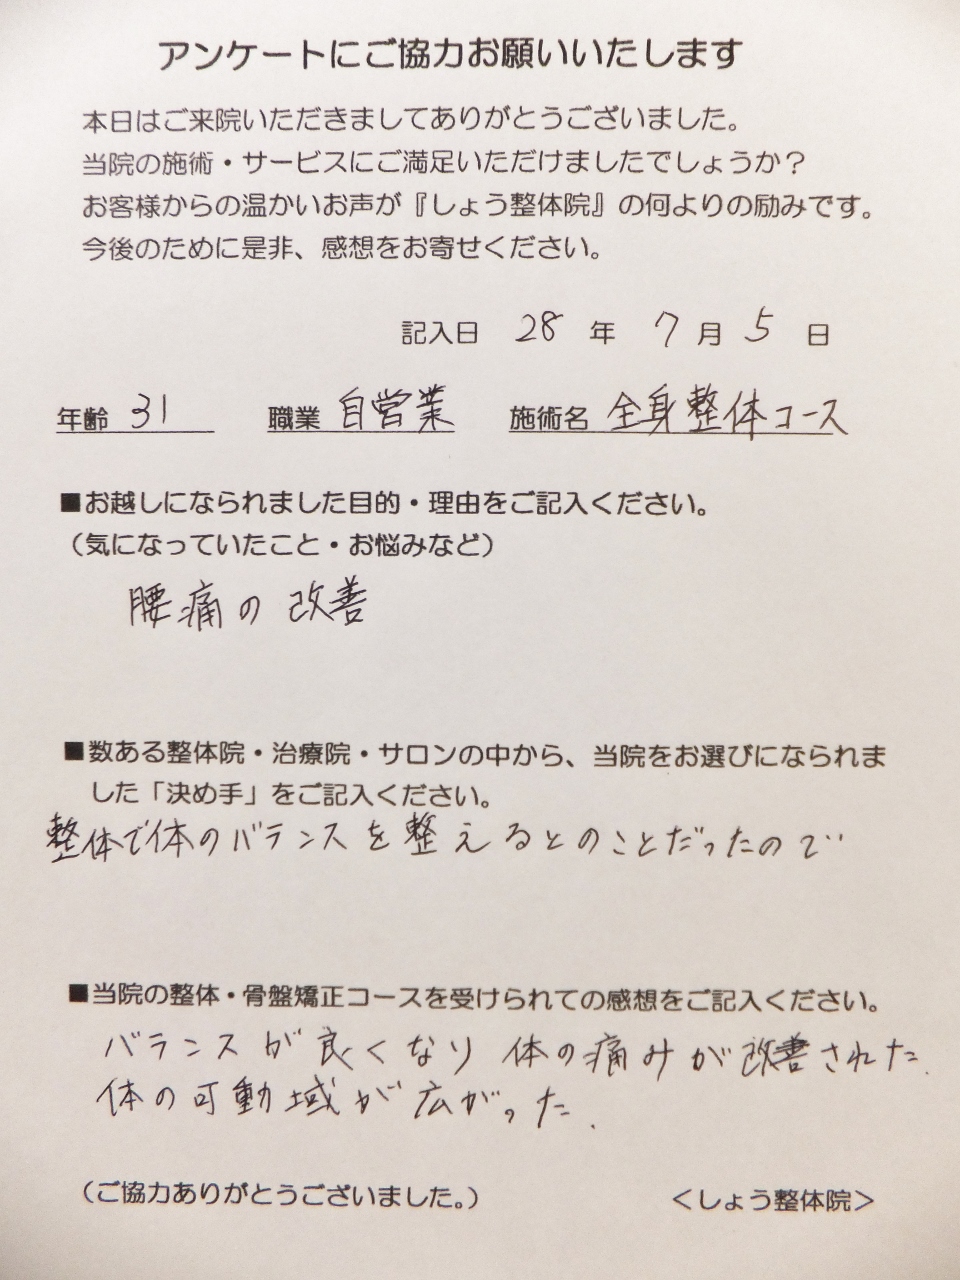 アンケートにご協力お願いいたします
本日はご来院いただきましてありがとうございました。
当院の施術・サービスにご満足いただけましたでしょうか？
お客様からの温かいお声が『しょう整体院』の何よりの励みです。
今後のために是非、感想をお寄せください。
記入日 28 年 7 月 5 日
年齢 31 職業 自営業 施術名 全身整体コース
■お越しになられました目的・理由をご記入ください。
（気になっていたこと・お悩みなど）
腰痛の改善
■数ある整体院・治療院・サロンの中から、当院をお選びになられま
した「決め手」をご記入ください。
整体で体のバランスを整えるとのことだったので
■当院の整体・骨盤矯正コースを受けられての感想をご記入ください。
バランスが良くなり 体の痛みが改善された.
体の可動域が広がった.
（ご協力ありがとうございました。） ＜しょう整体院＞